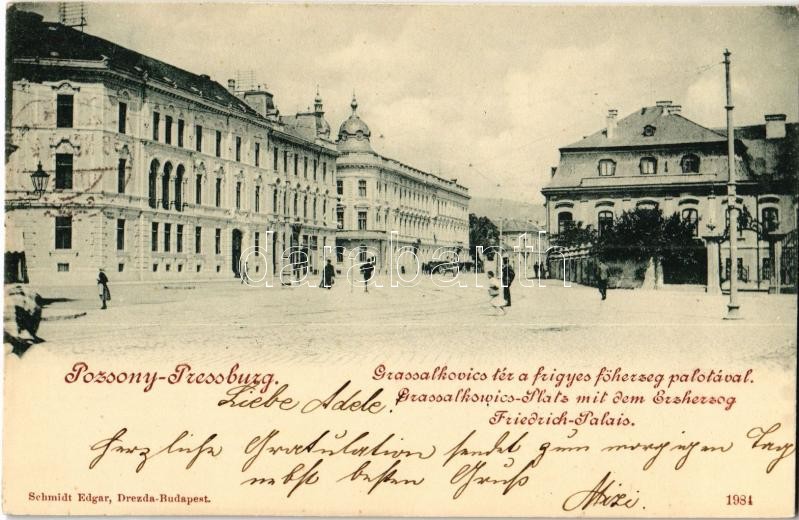 darabanth
Pozsony-Pressburg.
Grassalkovics tér a frigyes főherzeg palotával.
Grassalkowics-Platz mit dem Erzherzog
Friedrich-Palais.
Liebe Adele!
Herzliche Gratulation sendet zum morgigen Tag
nebst besten Gruß
Mizi.
Schmidt Edgar, Drezda-Budapest.
1984